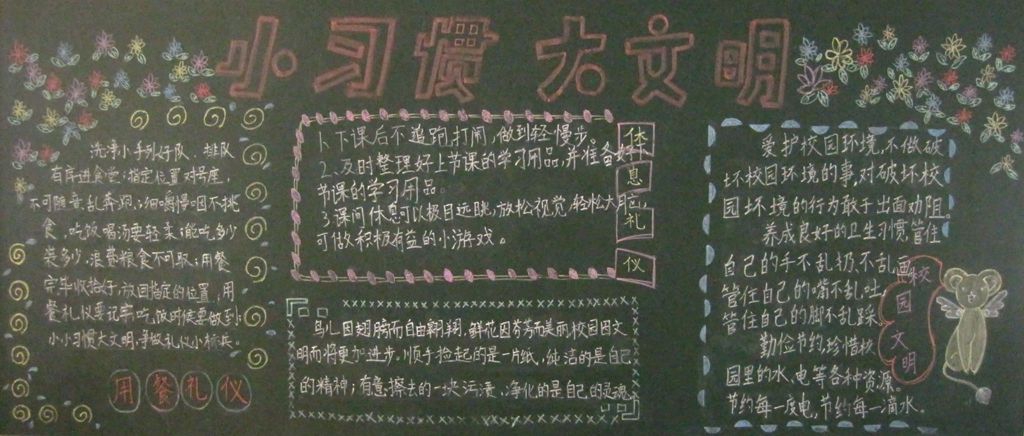 小习惯 大文明
洗净小手列好队，排队
有序进食堂；指定位置对号座，
不可随意乱奔跑；细嚼慢咽不挑
食，吃饭喝汤要轻柔；能吃多少
盛多少，浪费粮食不可取；用餐
完毕收拾好，放回指定的位置，用
餐礼仪要记牢，吃饭时候要做到；
小小习惯大文明，争做礼仪小标兵。
用餐礼仪
1、下课后不追跑打闹，做到轻、慢步。
2、及时整理好上节课的学习用品，并准备好下
节课的学习用品。
3、课间休息可以极目远眺，放松视觉，轻松大脑，
可做积极有益的小游戏。
休
息
礼
仪
鸟儿因翅膀而自由翱翔，鲜花因芬芳而美丽，校园因文
明而将更加进步。顺手捡起的是一片纸，纯洁的是自己
的精神；有意擦去的一块污渍，净化的是自己的灵魂。
爱护校园环境，不做破
坏校园环境的事，对破坏校
园环境的行为敢于出面劝阻。
养成良好的卫生习惯，管住
自己的手不乱扔、不乱画
管住自己的嘴不乱吐
管住自己的脚不乱踩
勤俭节约，珍惜校
园里的水、电等各种资源，
节约每一度电，节约每一滴水。
校
园
文
明